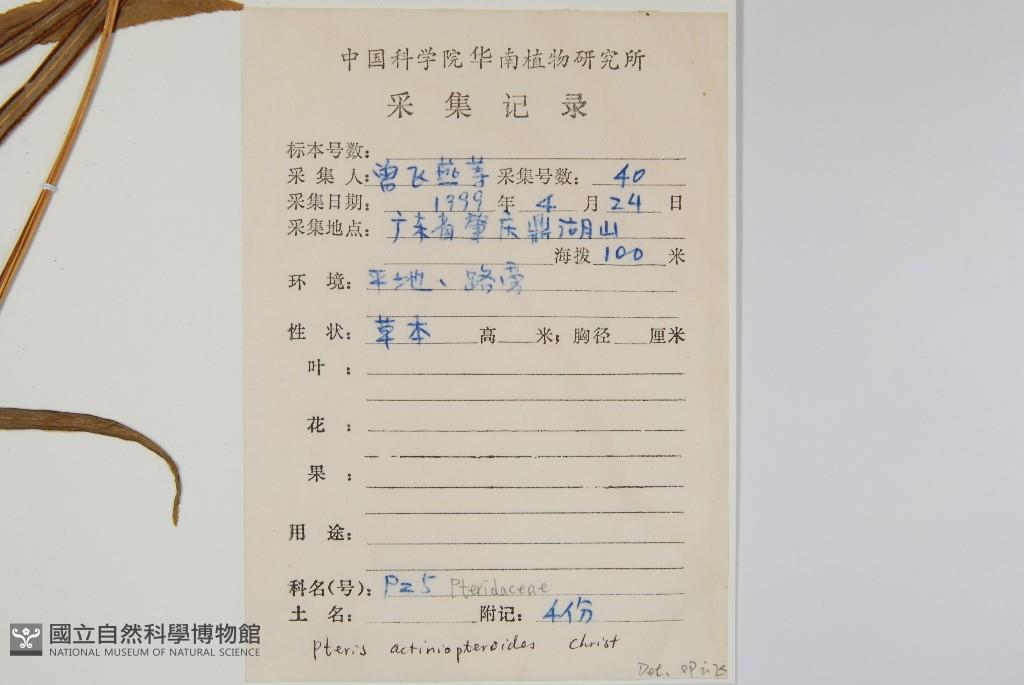 中国科学院华南植物研究所
采集记录
标本号数:
采集人: 曾飞燕等 采集号数: 40
采集日期: 1999年4月24日
采集地点: 广东省肇庆鼎湖山
海拨100米
环境: 平地、路旁
性状: 草本 高 米; 胸径 厘米
叶:
花:
果:
用途:
科名(号): P25 Pteridaceae
土名: 附记: 4份
Pteris actiniopteroides Christ
Det.
國立自然科學博物館
NATIONAL MUSEUM OF NATURAL SCIENCE